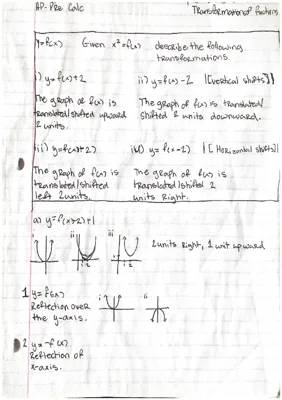 AP-Pre Calc
Transformation of functions
y=f(x) Given x²=f(x) describe the following
transformations.
i) y=f(x)+2 ii) y=f(x)-2 [Vertical shifts]
The graph of f(x) is
translated/shifted upward
2 units.
The graph of f(x) is translated/
shifted 2 units downward.
iii) y=f(x+2) iv) y=f(x-2) [Horizontal shifts]
The graph of f(x) is
translated/shifted
left 2units.
The graph of f(x) is
translated/shifted 2
units right.
a) y=f(x-2)+1
i ii iii
2units right, 1 unit upward
1 y=f(-x)
Reflection over
the y-axis.
i ii
2 y=-f(x)
Reflection of
x-axis.